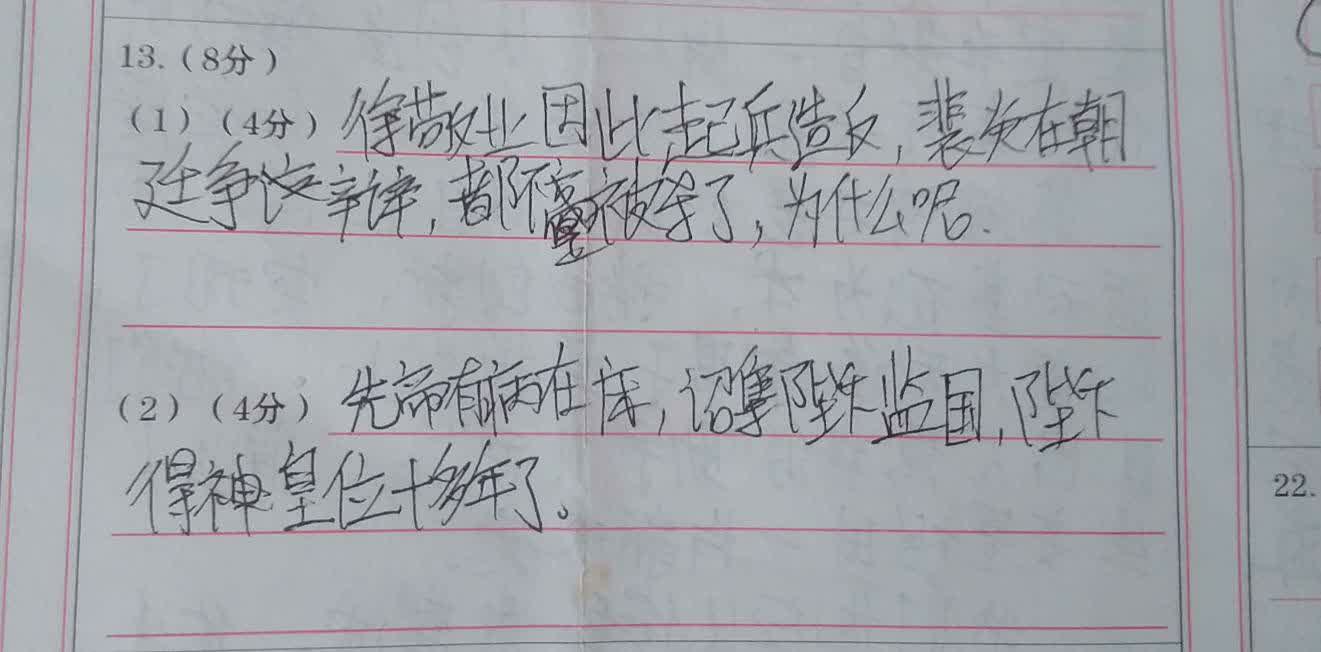 13.(8分)
(1)(4分)徐敬业因此起兵造反,裴炎在朝
廷争论辛谇,都不被杀了,为什么呢.
(2)(4分)先帝有病在床,诏集陛下监国,陛下
得神皇位十多年了。
22.